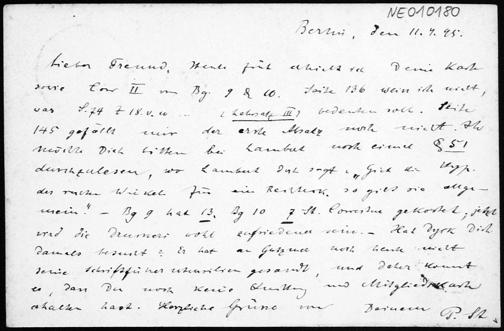 NE010180
Berlin, den 11.4.95.
Lieber Freund, Heute früh erhielt ich Deine Karte
sowie Corr II von Bg 9 & 10. Seite 136 weiss ich nicht,
was S. 74 Z 18. v. u. ... (Lehrsatz III) bedeuten soll. Seite
145 gefällt mir der erste Absatz noch nicht. Ich
möchte Dich bitten bei Lambert noch einmal § 51
durchzulesen, wo Lambert doch sagt: "Gilt die Hyp.
des rechten Winkels für ein Rechteck, so gilt sie allge-
mein." - Bg 9 hat 13, Bg 10 7 St. Correctur gekostet; jetzt
wird die Druckerei wohl zufrieden sein. - Hat Dyck Dich
damals besucht? Er hat an Gutzmer noch heute nicht
seine Schriftführerutensilien gesandt, und daher kommt
es, dass Du noch keine Quittung und Mitgliedskarte
erhalten hast. Herzliche Grüsse von Deinem P. St.